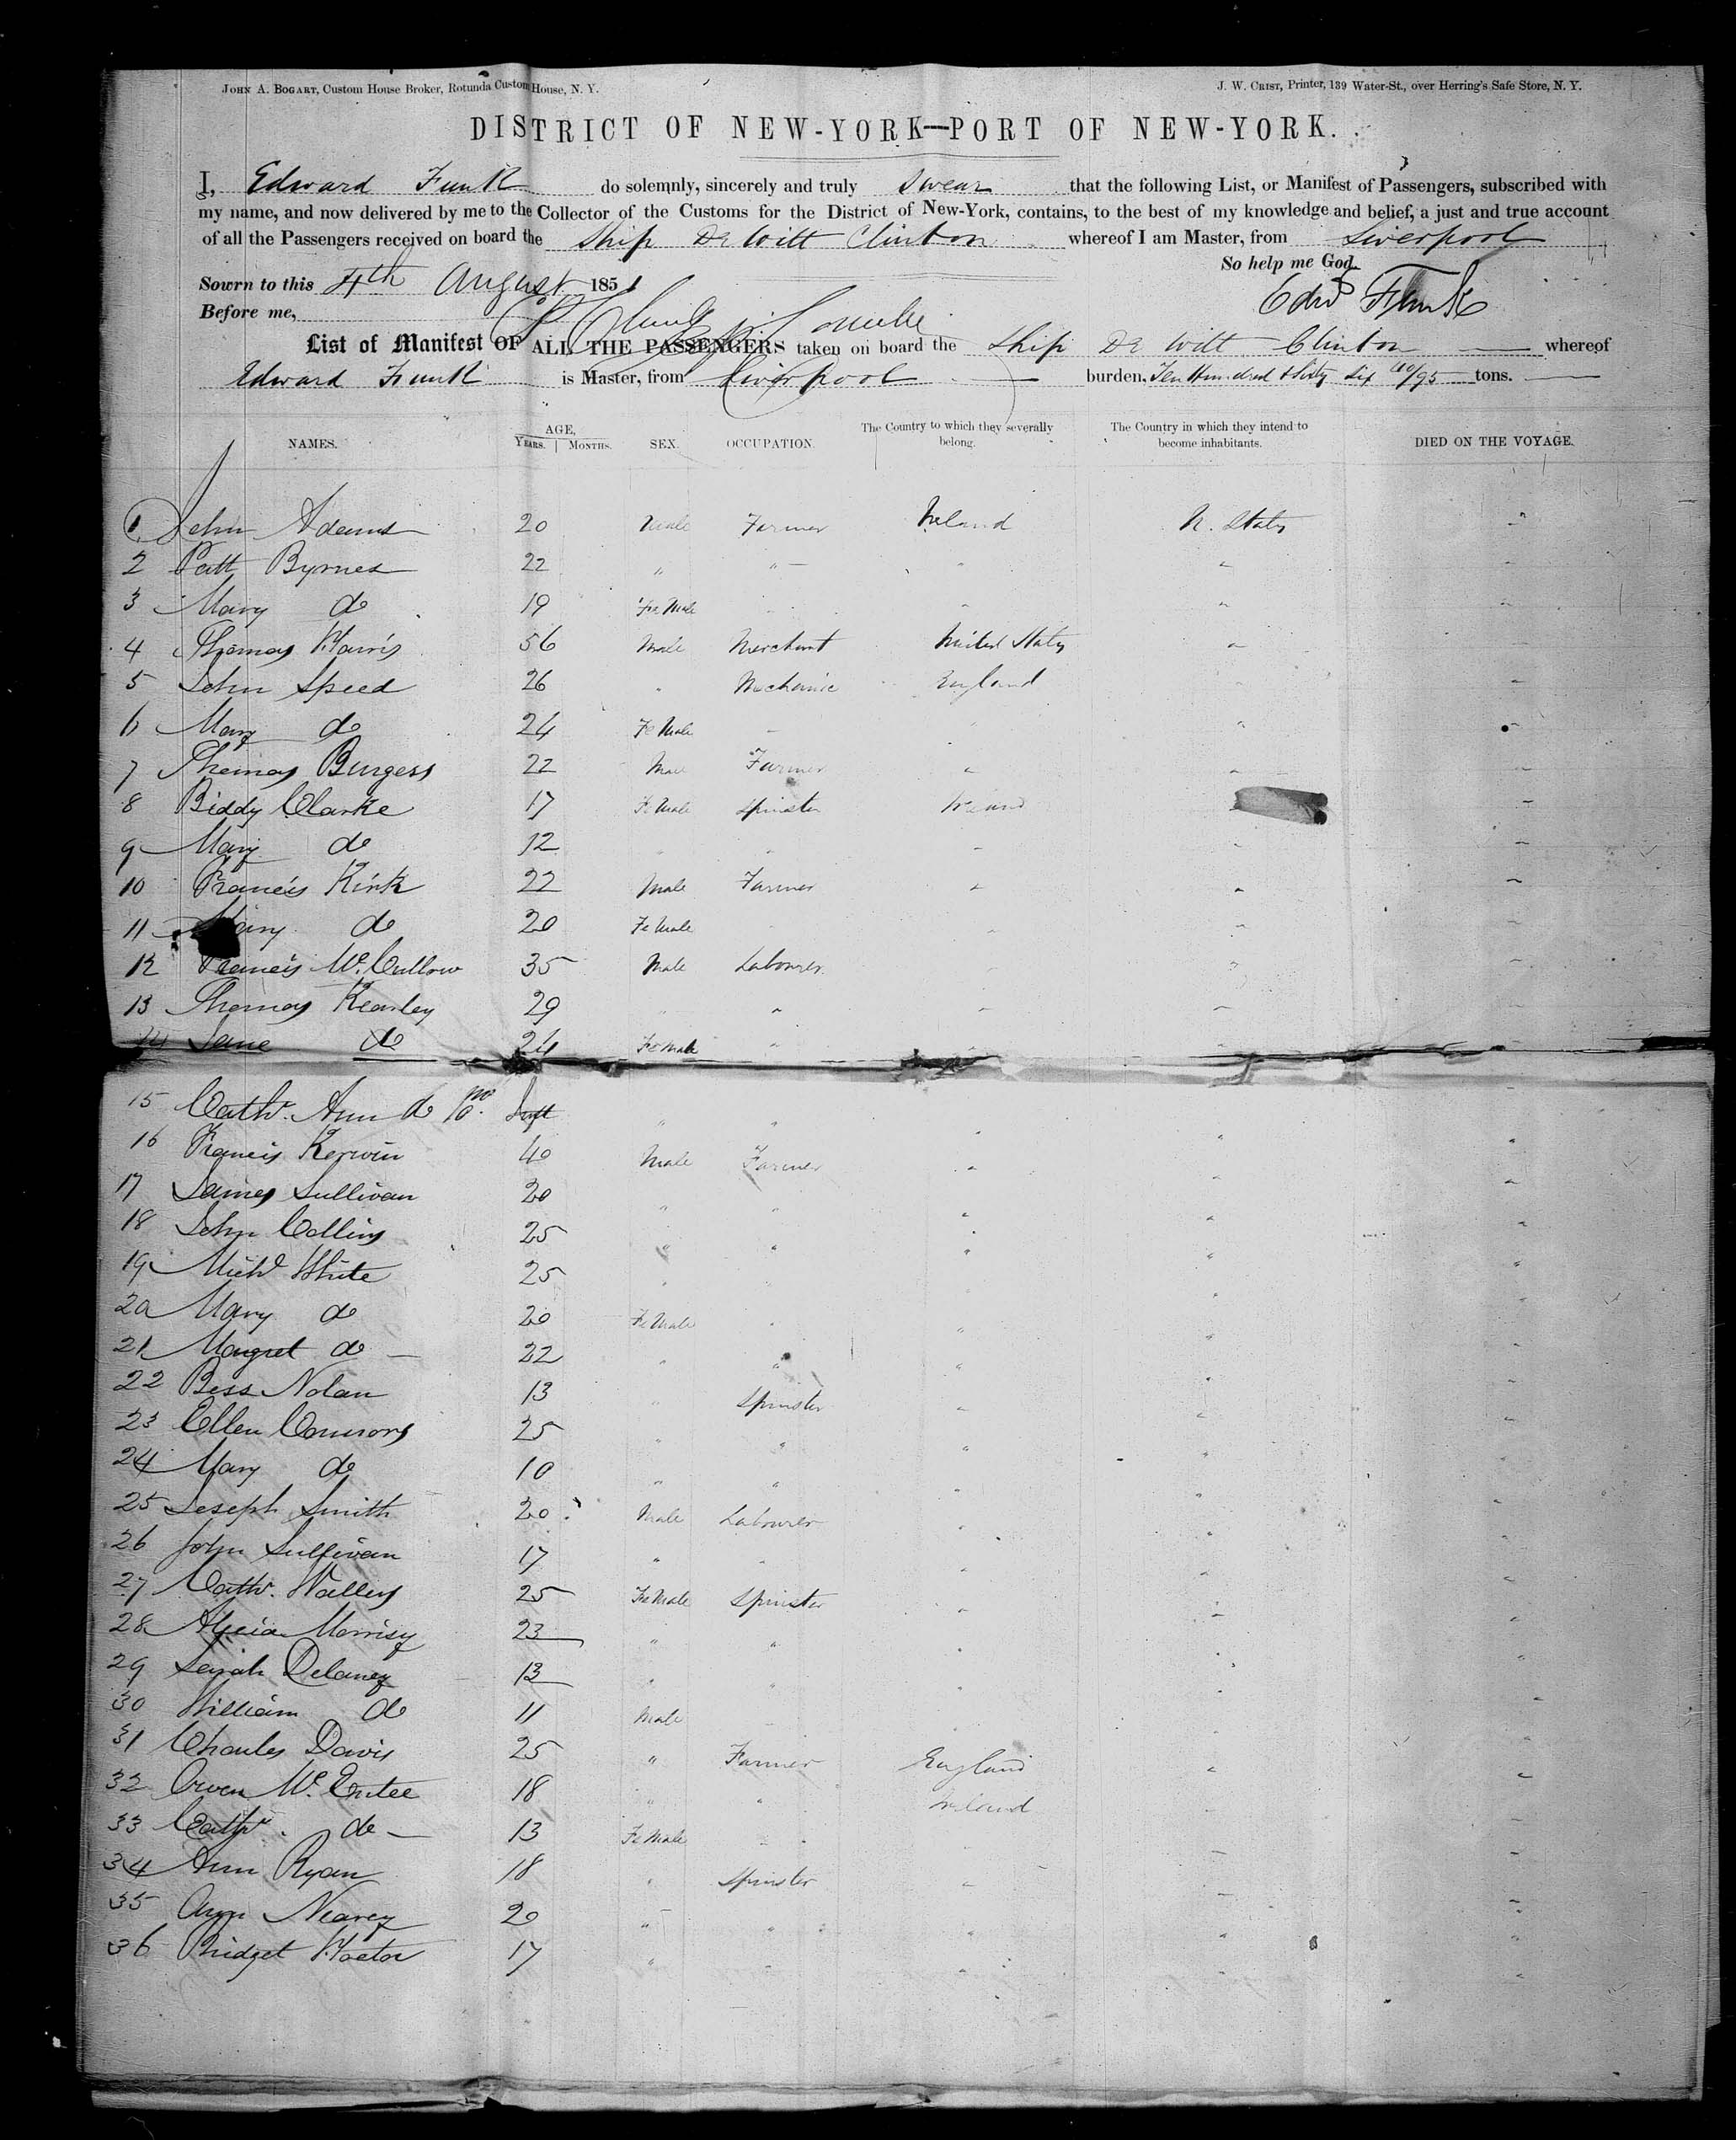 JOHN A. BOGART, Custom House Broker, Rotunda Custom House, N. Y.
J. W. CRIST, Printer, 139 Water-St., over Herring's Safe Store, N. Y.
DISTRICT OF NEW-YORK—PORT OF NEW-YORK.
I, Edward Funk do solemnly, sincerely and truly swear that the following List, or Manifest of Passengers, subscribed with
my name, and now delivered by me to the Collector of the Customs for the District of New-York, contains, to the best of my knowledge and belief, a just and true account
of all the Passengers received on board the Ship De Witt Clinton whereof I am Master, from Liverpool
So help me God.
Sowrn to this 4th August 1851
Edwd Funk
Before me,
List of Manifest OF ALL THE PASSENGERS taken on board the Ship De Witt Clinton — whereof
Edward Funk is Master, from Liverpool — burden, Ten Hundred & Sixty Six 60/95 tons. —
NAMES. AGE, YEARS. | MONTHS. SEX. OCCUPATION. The Country to which they severally belong. The Country in which they intend to become inhabitants. DIED ON THE VOYAGE.
1 John Adams 20 Male Farmer Ireland U. States "
2 Patt Byrnes 22 " " " "
3 Mary do 19 Fe Male " "
4 Thomas Harris 56 Male Merchant United States "
5 John Speed 26 " Mechanic England "
6 Mary do 24 Fe Male "
7 Thomas Burgess 22 Male Farmer " "
8 Biddy Clarke 17 Fe Male Spinster Ireland
9 Mary do 12 " " " "
10 Francis Kirk 22 Male Farmer " "
11 Mary do 20 Fe Male " "
12 Francis Mc.Cullow 35 Male Labourer " "
13 Thomas Kearley 29 " " " "
14 Jane do 24 Fe Male " " "
15 Cathr. Ann do 10 mo Inft " " " "
16 Francis Kerwin 40 Male Farmer " "
17 James Sullivan 20 " " " "
18 John Collins 25 " " " "
19 Michl White 25 " " " "
20 Mary do 20 Fe Male " " "
21 Margret do — 22 " " " "
22 Bess Nolan 13 " Spinster " "
23 Ellen Connors 25 " " " "
24 Mary do 10 " " " "
25 Joseph Smith 20 Male Labourer " "
26 John Sullivan 17 " " " "
27 Cathr. Wallens 25 Fe Male Spinster " "
28 Alicia Morrisy 23 " " " "
29 Sarah Delaney 13 " " " "
30 William do 11 Male " "
31 Charles Davis 25 " Farmer England "
32 Owen Mc.Entee 18 " " Ireland "
33 Cathr. do — 13 Fe Male " "
34 Ann Ryan 18 " Spinster " "
35 Ann Nearey 20 " " " "
36 Bridget Hoctor 17 " " " "